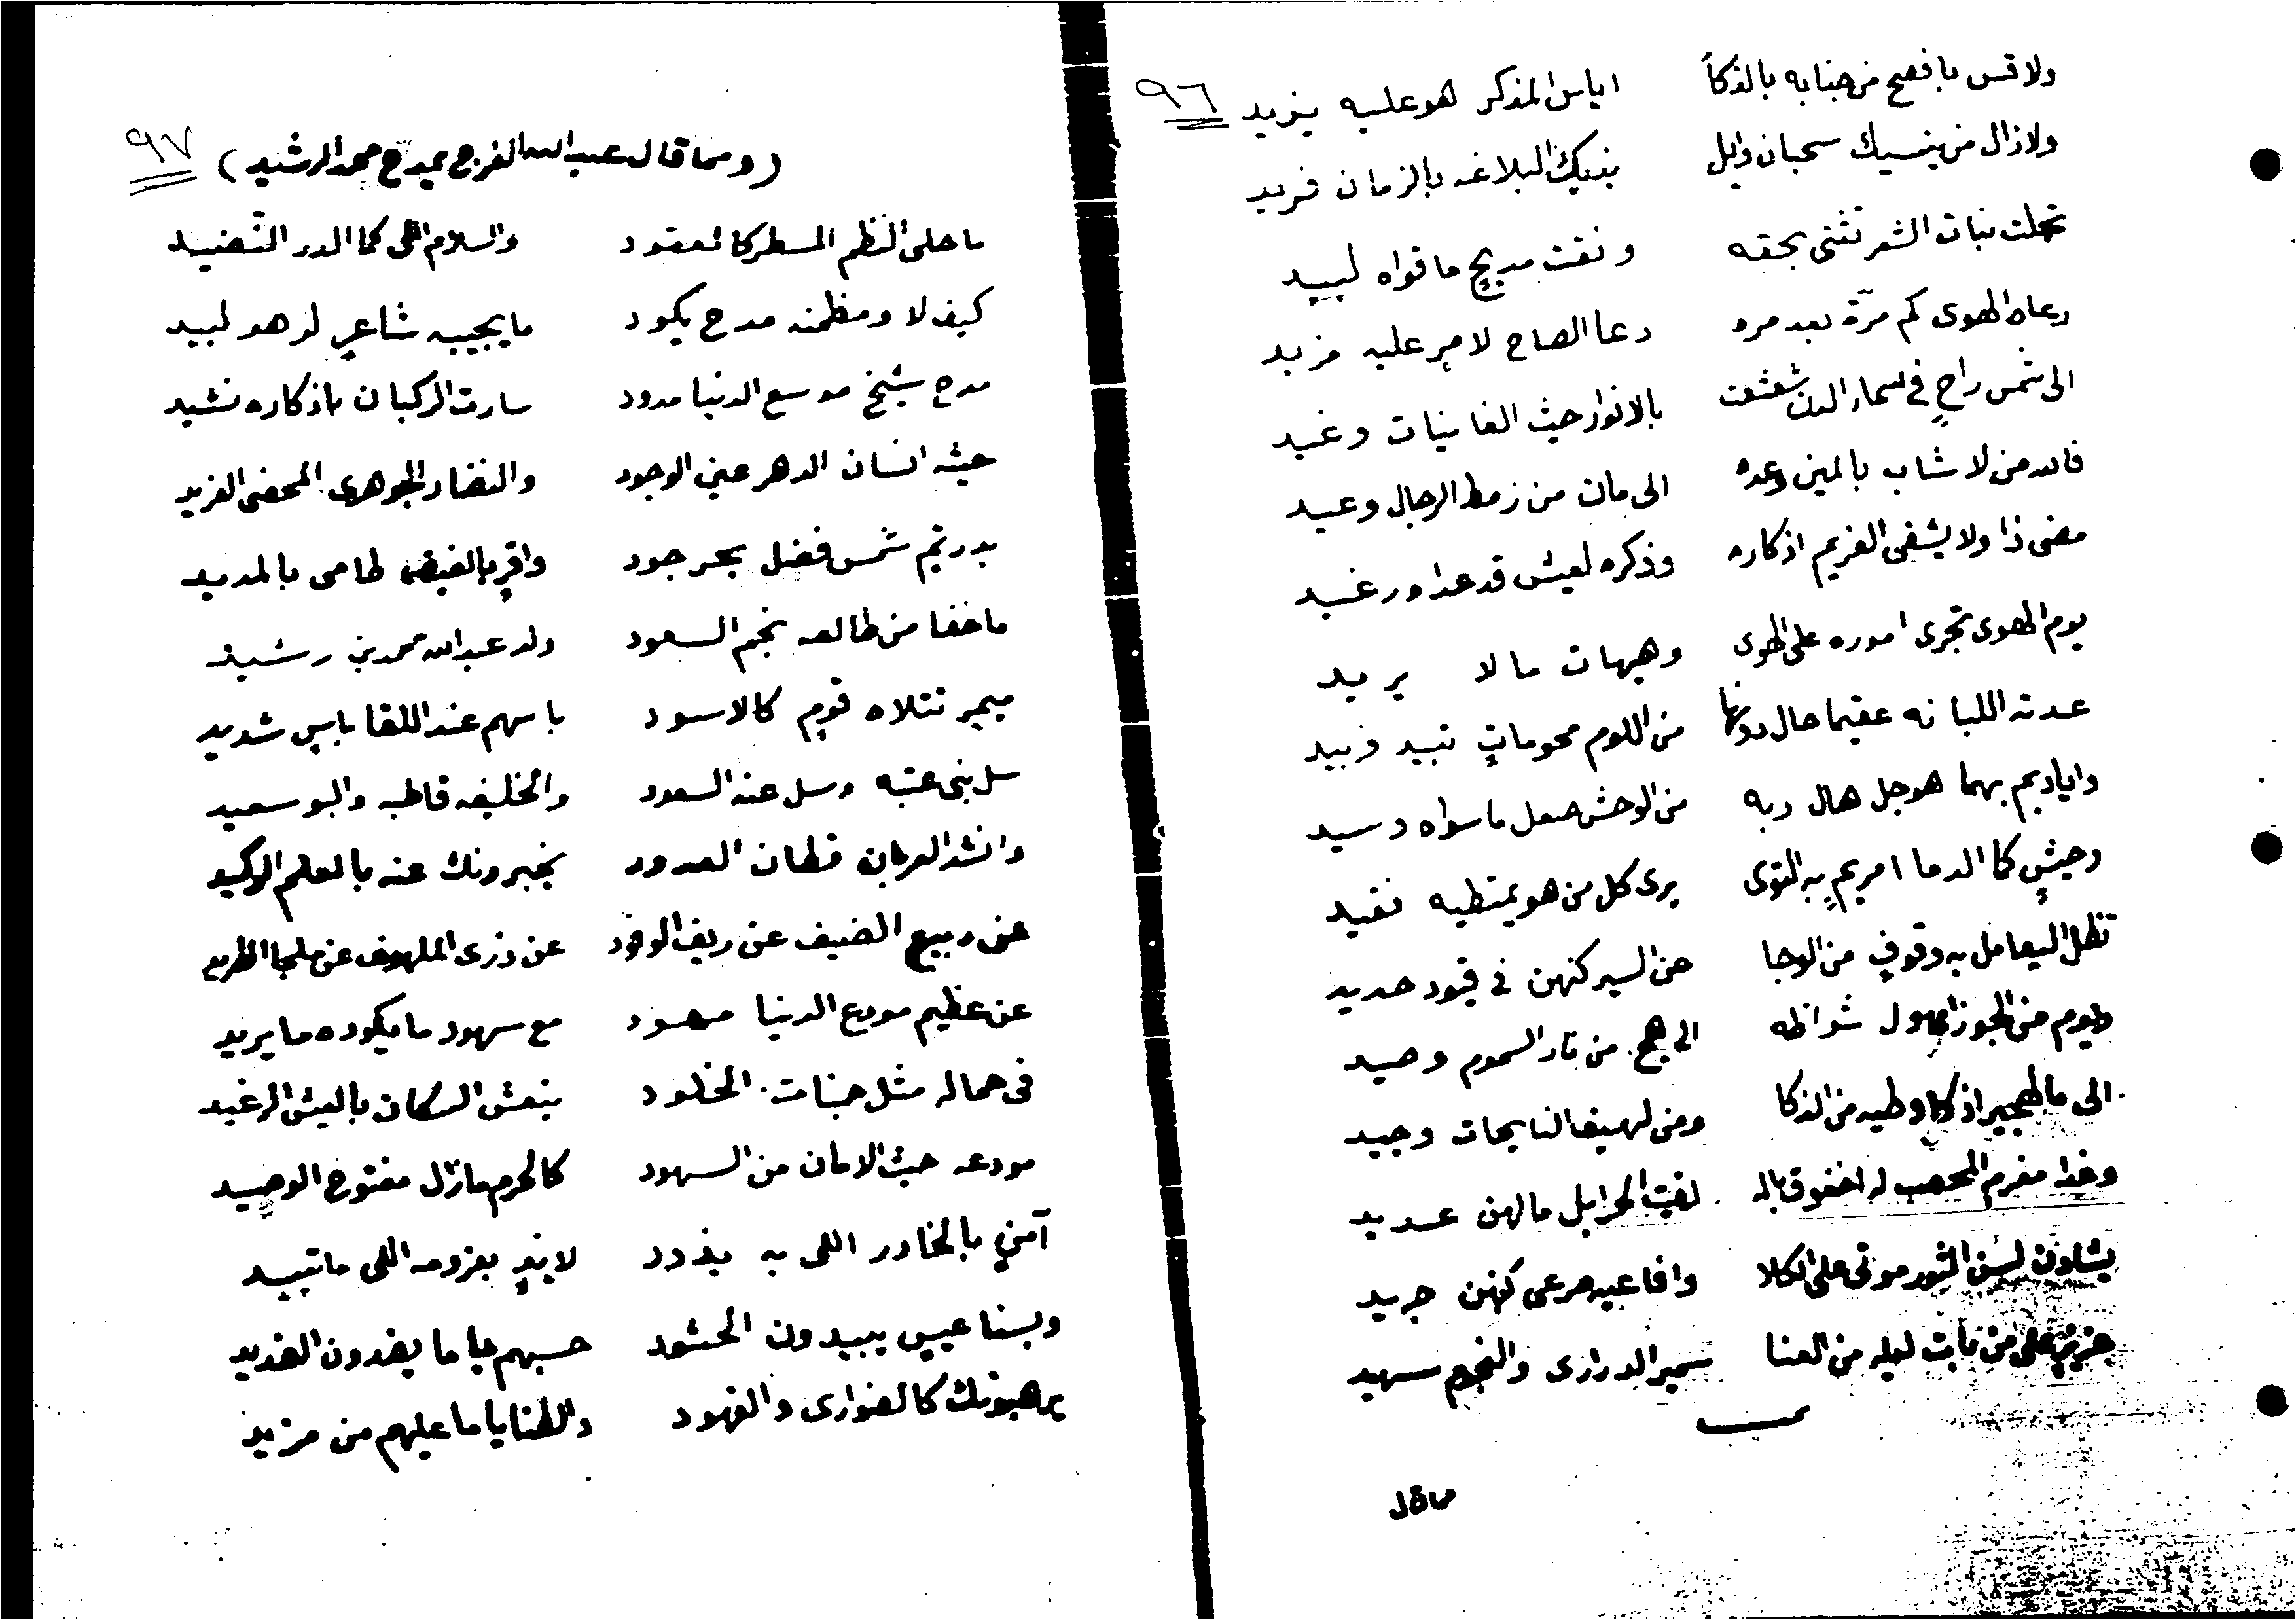 ٩٦
ولا قس بافصح من جنابه بالذكا    اياس المذكر هو عليه يزيد
ولازال من ينسيك سحبان وايل    بذيك البلاغه بالزمان فريد
تحلت بنات الشعر تثنى بحقه    ونقت مديحٍ ما قواه لبيد
دعاه الهوى كم مرّة بعد مره    دعا الصاح لامرٍ عليه مزيد
الى شمس راحٍ في سماء الدن شعشعت    بالانوار حيث الغانيات وغيد
فالله من لا شاب بالمين وعده    الى مات من زمط الرجال وعيد
مضى ذا ولا يشفى الغريم اذكاره    وذكره لعيش قد عدا ورغيد
يوم الهوى تجرى اموره على الهوى    وهيهات ما لا يريد
عدته اللبانه عقيما حال دونها    من اللوم محوماتٍ تبيد وبيد
واياديمٍ بهما هوجل هال دبه    من الوحش صعل ما سواه وسيد
وحيشٍ كما الدما امريمٍ به التوى    يرى كل من هو يمتطيه نقيد
تظل اليعامل به وقوفٍ من الوجا    عن السير كنهن في قيود حديد
ويوم من الجوزا مهول شواظه    الى هج من نار السموم وصيد
الى ما الهجير اذكا وطيه من الذكا    ومن لهيفا النايحات وجيد
وغدا مغرم المحصب له اخفوق باله    لقيت الحرابل مالهن عديد
يشلون لسن الثور موتى على الكلا    وافاعيه صرعى كنهن جريد
عزيزٍ على من بات ليله من العنا    سمير الدرارى والنجوم سهيد
تمت
مما قال
٩٧
(ومما قال عبدالله الفرج يمدح محمد الرشيد)
ما حلى النظم المسطر كالعقود    والسلام اللى كما الدر النضيد
كيف لا ومظمنه مدح يكود    ما يجيبه شاعرٍ لو هو لبيد
مدح شيخٍ مد سع الدنيا مدود    سارت الركبان باذكاره نشيد
حيثه انسان الدهر عين الوجود    والنضار الجوهرى المحض الفريد
بدر تم شمس فضل بحر جود    وافرٍ بالفيض طامى بالمديد
ما خفا من طالعه نجم السعود    ولد عبدالله محمد بن رشيد
ميمرٍ تتلاه قومٍ كالاسود    باسهم عند اللقا باسٍ شديد
سل بنى عتبه وسل عنه السعود    والخليفه قاطبه والبو سعيد
وانشد العربان قطان العدود    يخبرونك عنه بالعلم الوكيد
عن ربيع الضيف عن ريف الوفود    عن ذرى الملهوف عن ملجا الطريد
عن عظيم مودع الدنيا مهود    مع سهود ما يكوده ما يريد
فى حماله مثل جنات الخلود    ينعش السكان بالعيش الرغيد
مودعه حيث الامان من السهود    كالحرم مازال مفتوح الوصيد
آمنٍ بالخادر اللى به يذود    لابدٍ بعزومه اللى ما تبيد
وبسنا عيسٍ يبيدون الحشود    حسبهم ياما يغدون الغديد
يرهبونك كالضوارى والفهود    والطنايا ما عليهم من مزيد